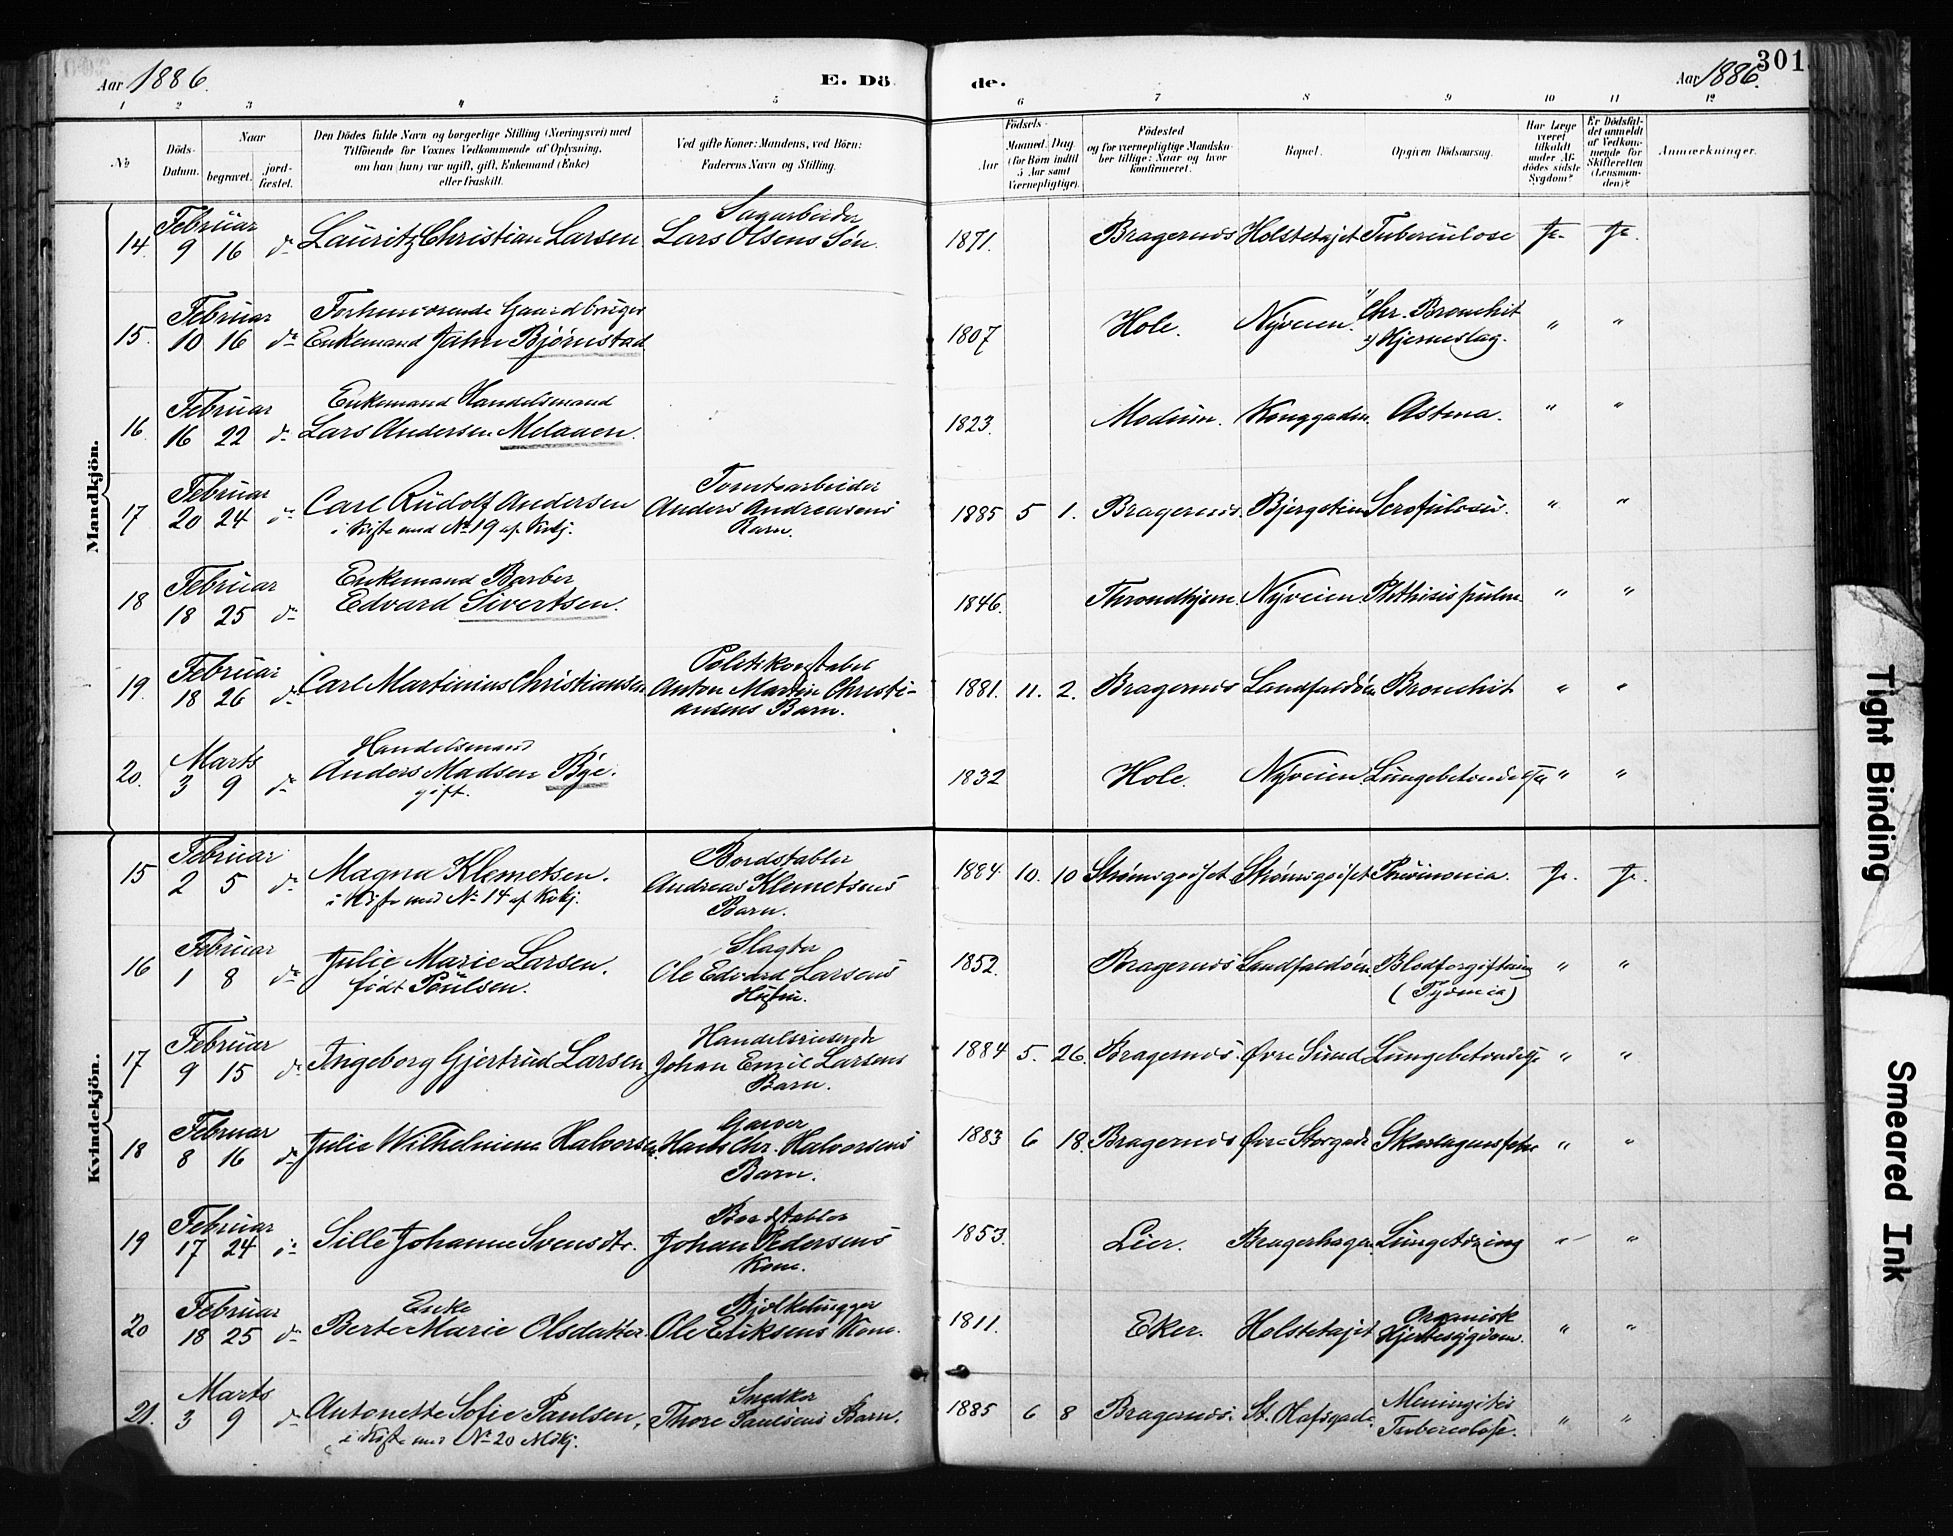 301
Aar 1886.
E. Dö
de.
Aar 1886.
1 2 3 4 5 6 7 8 9 10 11 12
No
Döds-Datum.
Naar
begravet.
jord-fæstet.
Den Dödes fulde Navn og borgerlige Stilling (Næringsvei) med
Tilføiende for Voxnes Vedkommende af Oplysning,
om han (hun) var ugift, gift, Enkemand (Enke)
eller fraskilt.
Ved gifte Koner: Mandens, ved Börn:
Faderens Navn og Stilling.
Födsels-
Aar
Maaned. Dag.
(for Börn indtil
5 Aar samt
Værnepligtige).
Födested
og for værnepligtige Mandska-
ber tillige: Naar og hvor
konfirmeret.
Bopæl.
Opgiven Dödsaarsag.
Har Læge
været
tilkaldt
under Af-
dödes sidste
Sygdom?
Er Dödsfal-
det anmeldt
af Vedkom-
mende for
Skifteretten
(Lensman-
den)?
Anmærkninger.
Mandkjön.
Februar Sagarbeider
14. 9 16 do Lauritz Christian Larsen Lars Olsens Søn. 1871. Bragernes Holstetajet Tuberculose Ja. Ja.
Februar Forhenværende Gaardbruger 1) Chr. Bronchit
15. 10 16 do Enkemand Jahn Bjørnstad 1807 Hole. Nyveien. 2) Hjerneslag. " "
Februar Enkemand Handelsmand
16. 16 22 do Lars Andersen Melaaen. 1823. Modum. Konggaden. Astma. " "
Februar Tomtearbeider
17 20 24 do Carl Rudolf Andersen Anders Andreasens 1885 5 1. Bragernes. Scrofulosis. " "
i Kiste med No 19 af Kvkj. Barn.
Februar Enkemand Barber
18 18 25 do Edvard Sivertsen. 1846. Throndhjem. Nyveien. Phthisis pulm. " "
Februar Politikonstabel
19. 18 26 do Carl Martinius Christiansen Anton Martin Christi- 1881. 11. 2. Bragernes Landfaldöen Bronchit " "
ansens Barn.
Marts Handelsmand
20. 3 9 do Anders Madsen Bye. 1832 Hole. Nyveien Lungebetændelse " "
gift.
Kvindekjön.
Februar Bordstabler
15 2 5 do Magna Klemetsen. Andreas Klemetsens 1884 10. 10 Strømsgodset Strømsgodset Pneumonia. Ja. Ja.
i Kiste med No 14 af Kvkj. Barn.
Februar Slagter
16 1 8 do Julie Marie Larsen. Ole Edvard Larsens 1852. Bragernes Landfaldöen. Blodforgiftning " "
født Poulsen. Hustru.
Februar Handelsreisende
17 9 15 do Ingeborg Gjertrud Larsen. Johan Emil Larsens 1884 5. 26. Bragernes. Øvre Sund Lungebetændelse " "
Barn.
Februar Garver
18 8 16 do Julie Wilhelmine Halvorsen. Hans Chr. Halvorsens 1883 6 18. Bragernes Øvre Storgade Skarlagensfeber " "
Barn.
Februar Bordstabler
19 17 24 do Sille Johanne Svensdtr. Johan Pedersens 1853. Lier. Bragerhagen Lungetæring " "
Kone.
Februar Enke Bjelkehugger Organisk
20 18 25 do Berte Marie Olsdatter. Ole Eriksens Kone. 1811. Eker. Holstetajet Hjertesygdom. " "
Marts Snedker Meningitis
21. 3 9 do Antonette Sofie Paulsen. Thore Paulsens Barn. 1885 6 8 Bragernes. St. Olafsgade. Tuberculose. " "
i Kiste med No 20 Mdkj.
Tight Binding
Smeared Ink